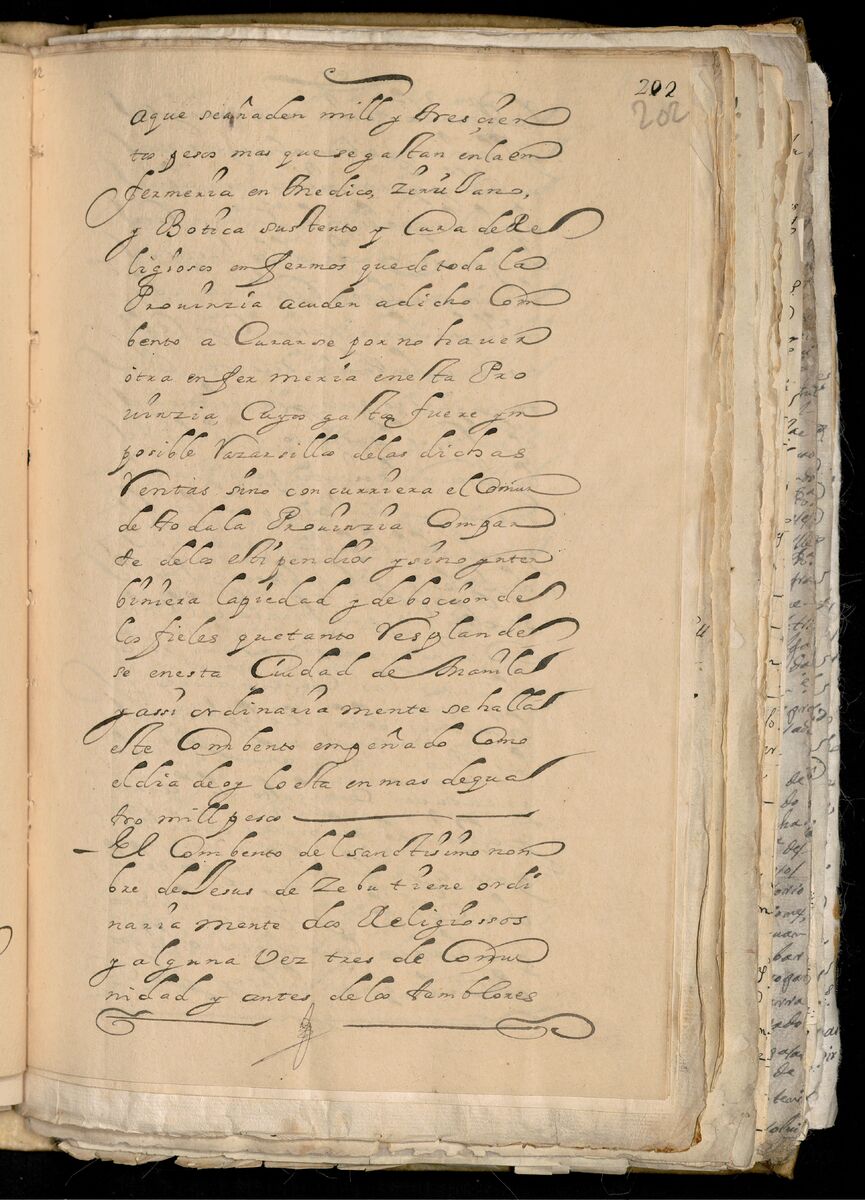 202
202
aque se añaden mill y tres çien
tos pesos mas que se gastan en la en
fermeria en Medico, Zirujano,
y Botica sustento y Cura de Re
ligiosos enfermos que de toda la
Prouinzia acuden a dicho Com
bento a Curarse por no hauer
otra enfermeria en esta Pro
uinzia, Cuyos gastos fuere ym
posible
delas dichas
Rentas sino concurriera el Comun
de toda la Prouinzia Compar
te delos estipendios y sino ynter
biniera la piedad y deboçion de
los fieles que tanto Resplande
se en esta Ciudad de Manila
y assi ordinariamente se halla
este Combento empeñado Como
el dia de oy lo esta en mas de qua
tro mill pesos
El Combento del Sanctisimo nom
bre de Jesus de Zebu tiene ordi
nariamente dos Religiossos
y alguna Vez tres de Comu
nidad y antes delos temblores